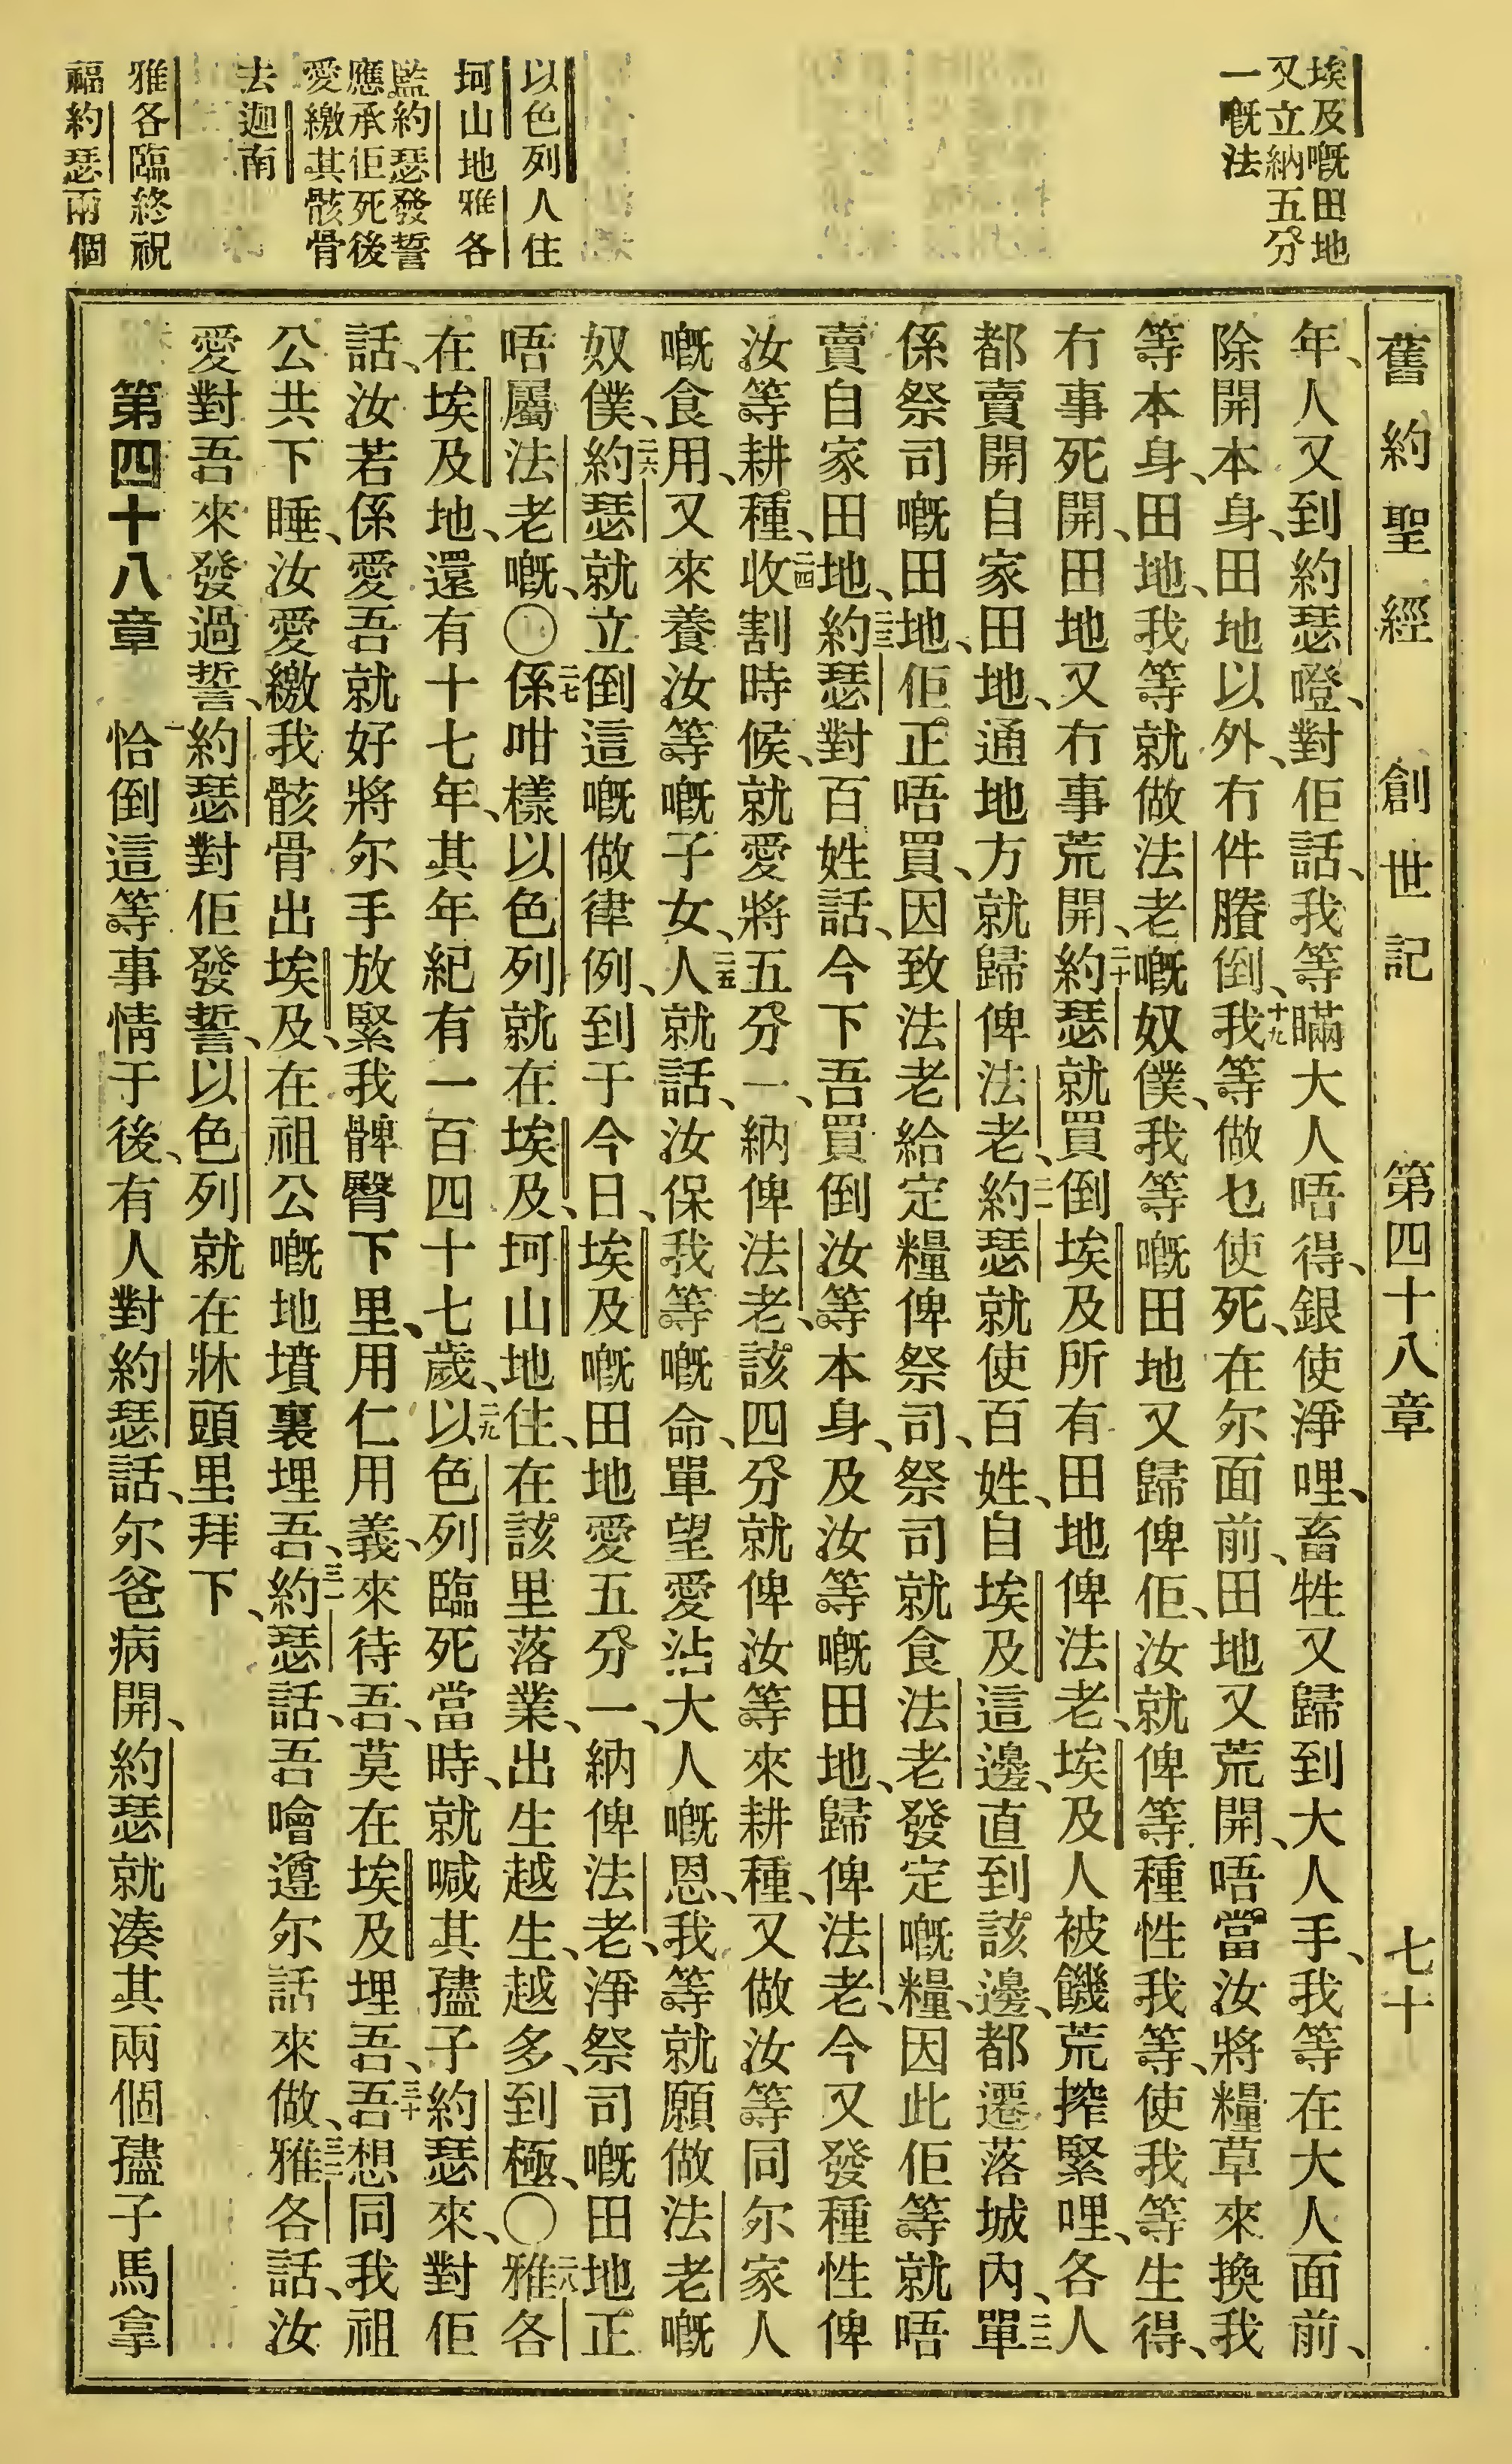 舊約聖經 創世記 第四十八章 七十
埃及嘅田地
又立納五分
一嘅法
以色列人住
坷山地雅各
監約瑟發誓
應承佢死後
愛繳其骸骨
去迦南
雅各臨終祝
福約瑟兩個
年、人又到約瑟嶝、對佢話、我等瞞大人唔得、銀使淨哩、畜牲又歸到大人手、我等在大人面前、
除開本身、田地以外、冇件賸倒、十九我等做乜使死、在尔面前、田地又荒開、唔當汝將糧草來換我
等本身、田地、我等就做法老嘅奴僕、我等嘅田地又歸俾佢、汝就俾等種性我等、使我等生得、
冇事死開、田地又冇事荒開、二十約瑟就買倒埃及所有田地俾法老、埃及人被饑荒搾緊哩、各人
都賣開自家田地、通地方就歸俾法老、二一約瑟就使百姓、自埃及這邊、直到該邊、都遷落城內、二二單
係祭司嘅田地、佢正唔買、因致法老給定糧俾祭司、祭司就食法老發定嘅糧、因此佢等就唔
賣自家田地、二三約瑟對百姓話、今下吾買倒汝等本身、及汝等嘅田地、歸俾法老、今又發種性俾
汝等耕種、二四收割時候、就愛將五分一、納俾法老、該四分就俾汝等來耕種、又做汝等同尔家人
嘅食用、又來養汝等嘅子女、二五人就話、汝保我等嘅命、單望愛沾大人嘅恩、我等就願做法老嘅
奴僕、二六約瑟就立倒這嘅做律例、到于今日、埃及嘅田地愛五分一、納俾法老、淨祭司嘅田地正
唔屬法老嘅、〇二七係咁樣以色列就在埃及、坷山地住、在該里落業、出生越生、越多、到極、〇二八雅各
在埃及地、還有十七年、其年紀有一百四十七歲、二九以色列臨死當時、就喊其孻子約瑟來、對佢
話、汝若係愛吾就好將尔手放緊我髀臀下里、用仁用義、來待吾、莫在埃及埋吾、三十吾想同我祖
公共下睡、汝愛繳我骸骨出埃及、在祖公嘅地墳裏埋吾、三一約瑟話、吾噲遵尔話來做、雅各話、汝
愛對吾來發過誓、約瑟對佢發誓、以色列就在牀頭里拜下、
第四十八章 一恰倒這等事情于後、有人對約瑟話、尔爸病開、約瑟就湊其兩個孻子馬拿